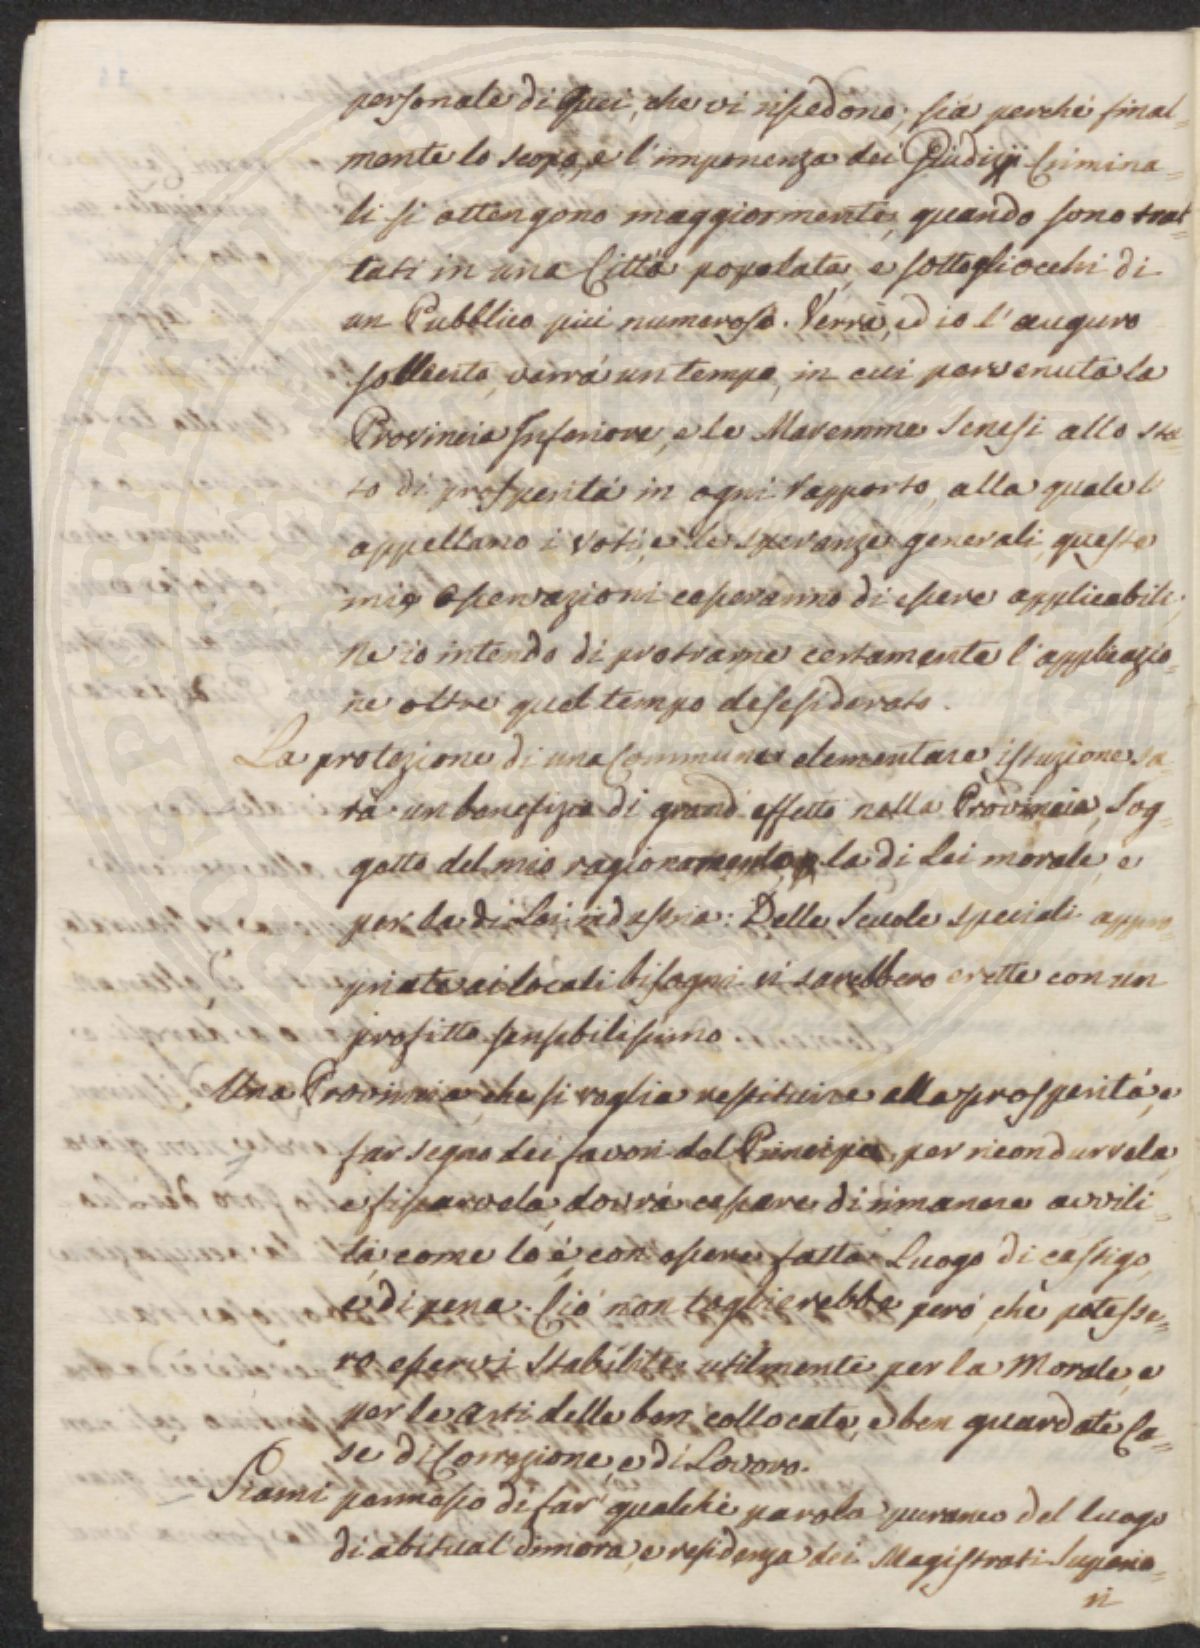 personale di quei, che vi risiedono; sia perché final=
mente lo scopo, e l'imponenza dei Giudizj Crimina=
li si ottengono maggiormente, quando sono trat=
tati in una Città popolata, e sottogliocchi di
un Pubblico più numeroso. Verrà, ed io l'auguro
sollecito, verrà un tempo, in cui pervenuta la
Provincia Inferiore, e le Maremme Senesi allo sta=
to di prosperità in ogni rapporto, alla quale l'
appellano i voti, e le speranze generali, queste
mie osservazioni cesseranno di essere applicabili,
ne io intendo di protrarne certamente l'applicazio=
ne oltre quel tempo desesiderato.
La protezione di una Commune elementare istuzione sa=
rà un benefizio di grand'effetto nella Provincia, Sog=
getto del mio ragionamento, la di Lei morale, e
per la di Lei industria: Delle Scuole speciali appro=
priate ai locali bisogni vi sarebbero erette con un
profitto sensibilissimo.
Una Provincia, che si voglia restituire alla prosperità, e
far segno dei favori del Principe, per ricondurvela,
e fissarvela, dovrà cessare di rimanere avvili=
ta, come lo è, con essere fatta Luogo di castigo,
e di pena. Ciò non toglierebbe però, che potesse=
ro esservi stabilite utilmente per la Morale, e
per le arti delle ben collocate, e ben guardate Ca=
se di Correzione, e di Lavoro.
Siami permesso di far qualche parola puranco del luogo
di abitual dimora, e residenza dei Magistrati Superio=
ri